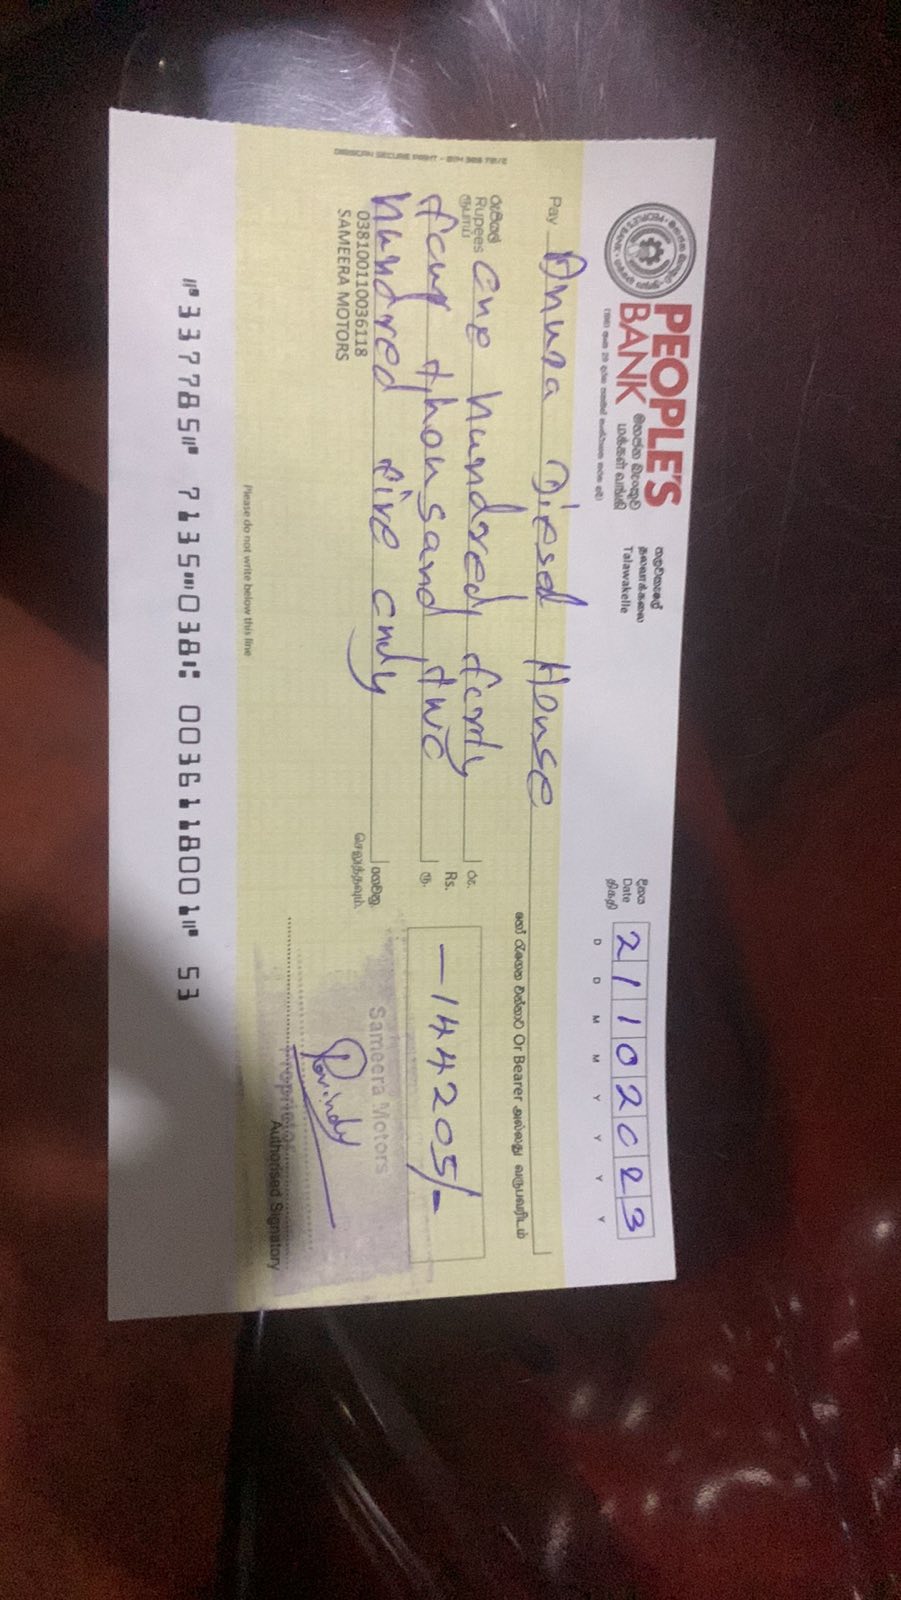 PEOPLE'S
BANK
මහජන බැංකුව
மக்கள் வங்கி
තලවාකැලේ
தலவாக்கலை
Talawakelle
දිනය
Date
திகதி
21102023
D D M M Y Y Y Y
Pay Anura Diesel House
හෝ රැගෙන එන්නාට Or Bearer அல்லது வருபவரிடம்
රුපියල්
Rupees
ரூபாய்
one hundred forty
four thousand two
hundred five only
රු.
Rs.
ரூ.
—144205/-
ගෙවනු.
செலுத்தவும்.
038100110036118
SAMEERA MOTORS
Sameera Motors
Proprietor
Authorised Signatory
Please do not write below this line
⑈337785⑈ 7135⑉038⑆ 0036118001⑈ 53